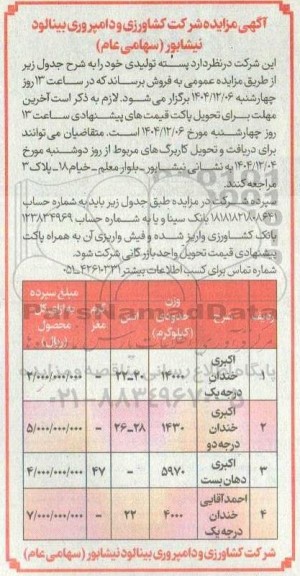 آگهی مزایده شرکت کشاورزی و دامپروری بینالود
نیشابور (سهامی عام)
این شرکت در نظر دارد پسته تولیدی خود را به شرح جدول زیر
از طریق مزایده عمومی به فروش برساند که در ساعت ۱۳ روز
چهارشنبه ۱۴۰۴/۱۲/۰۶ برگزار می شود. لازم به ذکر است آخرین
مهلت برای تحویل پاکت قیمت های پیشنهادی ساعت ۱۳
روز چهارشنبه مورخ ۱۴۰۴/۱۲/۰۶ است. متقاضیان می توانند
برای دریافت و تحویل کاربرگ های مربوط از روز دوشنبه مورخ
۱۴۰۴/۱۲/۰۴ به نشانی نیشابور - بلوار معلم - خیام ۱۸ - پلاک ۳
مراجعه کنند.
سپرده شرکت در مزایده طبق جدول زیر باید به شماره حساب
بانک سینا و یا به شماره حساب ۱۲۳۸۳۴۹۶۹
بانک کشاورزی واریز شده و فیش واریزی آن به همراه پاکت
پیشنهادی قیمت تحویل واحد بازرگانی شرکت شود.
شماره تماس برای کسب اطلاعات بیشتر: ۴۲۶۱۰۳۳۱-۰۵۱
ردیف شرح وزن حدودی (کیلوگرم) انس مغز مبلغ سپرده محصول (ریال)
۱ اکبری خندان درجه یک ۲۰-۲۲ - ۲/۰۰۰/۰۰۰/۰۰۰
۲ اکبری خندان درجه دو ۱۴۳۰ ۲۶-۲۸ - ۵/۰۰۰/۰۰۰/۰۰۰
۳ اکبری دهان بست ۵۹۷۰ - ۴۷ ۴/۰۰۰/۰۰۰/۰۰۰
۴ احمدآقایی خندان درجه یک ۴۰۰۰ ۲۲ - ۷/۰۰۰/۰۰۰/۰۰۰
شرکت کشاورزی و دامپروری بینالود نیشابور (سهامی عام)
ParsNamadData
پایگاه اطلاع رسانی مناقصه و مزایده
۰۲۱-۸۸۳۴۹۶۷۰